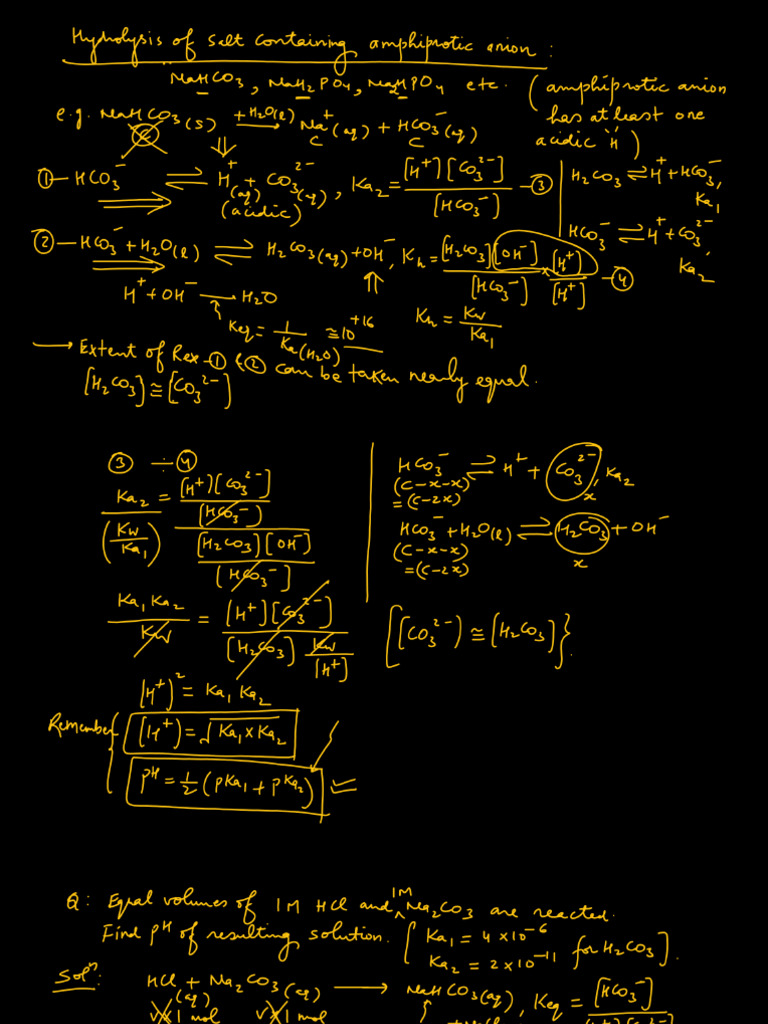 Hydrolysis of salt containing amphiprotic anion :
NaHCO3, NaH2PO4, Na2HPO4 etc. (amphiprotic anion has at least one acidic 'H')
e.g. NaHCO3(s) +H2O(l) → Na+(aq) + HCO3-(aq)
C C C
① — HCO3- ⇌ H+(aq) + CO3 2-(aq), Ka2 = [H+][CO3 2-] / [HCO3-] — ③
(acidic)
H2CO3 ⇌ H+ + HCO3-, Ka1
HCO3- ⇌ H+ + CO3 2-, Ka2
② — HCO3- + H2O(l) ⇌ H2CO3(aq) + OH-, Kh = [H2CO3][OH-] / [HCO3-] × [H+] / [H+] — ④
H+ + OH- → H2O
Keq = 1 / Ka(H2O) ≅ 10+16
Kh = Kw / Ka1
→ Extent of Rex- ① & ② can be taken nearly equal.
[H2CO3] ≅ [CO3 2-]
③ ÷ ④
Ka2 / (Kw / Ka1) = [H+][CO3 2-] / [HCO3-] / [H2CO3][OH-] / [HCO3-]
Ka1 Ka2 / Kw = [H+][CO3 2-] / [H2CO3] Kw / [H+]
HCO3- ⇌ H+ + CO3 2-, Ka2
(C-x-x) x
= (C-2x)
HCO3- + H2O(l) ⇌ H2CO3 + OH-
(C-x-x) x
= (C-2x)
{[CO3 2-) ≅ [H2CO3]}.
[H+]2 = Ka1 Ka2
Remember { [H+) = √Ka1 × Ka2
pH = 1/2 (pKa1 + pKa2)
Q: Equal volumes of 1M HCl and 1M Na2CO3 are reacted.
Find pH of resulting solution. [Ka1 = 4 × 10-6
Ka2 = 2 × 10-11 for H2CO3].
Soln:
HCl(aq) + Na2CO3(aq) → NaHCO3(aq), Keq = [HCO3-]
1 mol 1 mol